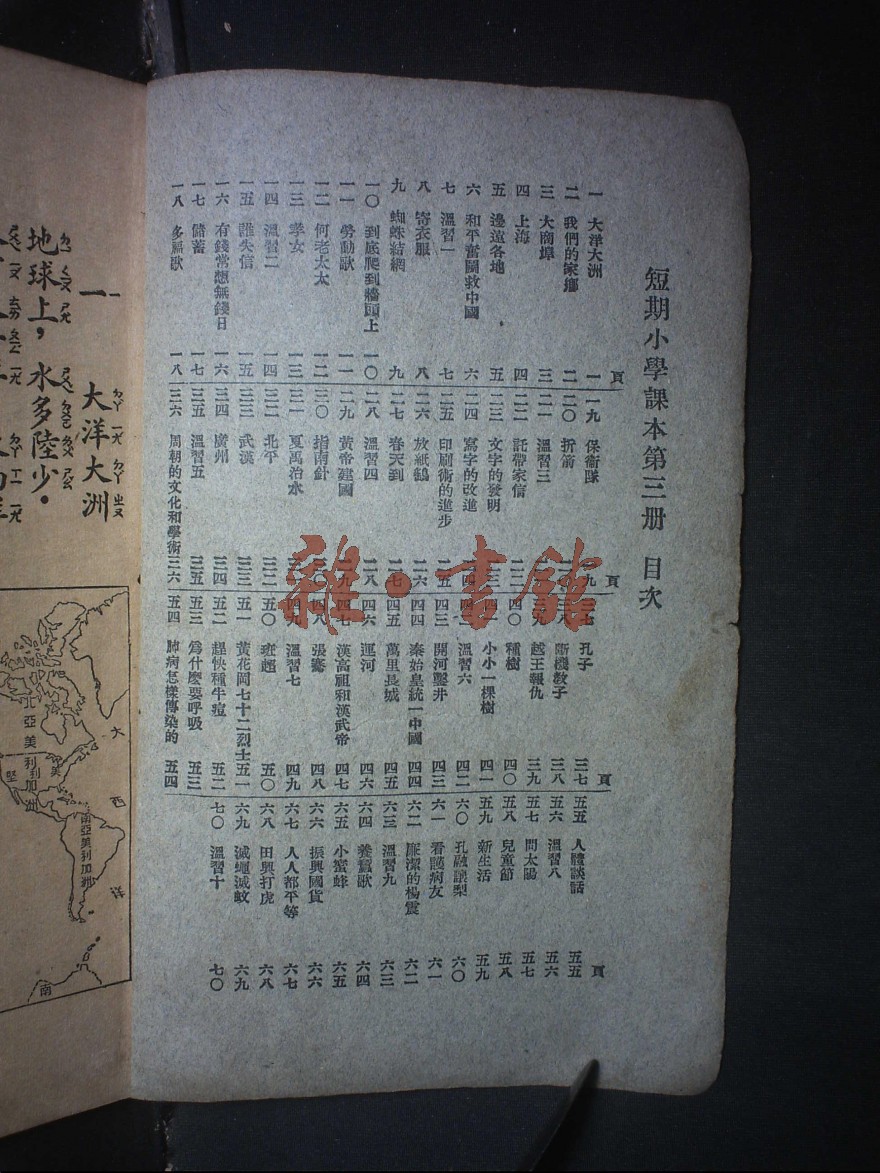 短期小學課本第三册 目次
頁
一 大洋大洲 一
二 我們的家鄉 二
三 大商埠 三
四 上海 四
五 邊遠各地 五
六 和平奮鬭救中國 六
七 溫習一 七
八 寄衣服 八
九 蜘蛛結網 九
一〇 到底爬到牆頭上 一〇
一一 勞動歌 一一
一二 何老太太 一二
一三 孝女 一三
一四 溫習二 一四
一五 誰失信 一五
一六 有錢常想無錢日 一六
一七 儲蓄 一七
一八 多福歌 一八
頁
一九 保衞隊 一九
二〇 折箭
二一 溫習三
二二 託帶家信 二二
二三 文字的發明 二三
二四 寫字的改進 二四
二五 印刷術的進步 二五
二六 放紙鶴 二六
二七 春天到 二七
二八 溫習四 二八
二九 黃帝建國 二九
三〇 指南針 三〇
三一 夏禹治水
三二 北平 三二
三三 武漢 三三
三四 廣州 三四
三五 溫習五 三五
三六 周朝的文化和學術 三六
頁
三七 孔子 三七
三八 斷機教子 三八
三九 越王報仇 三九
四〇 種樹 四〇
四一 小小一棵樹 四一
四二 溫習六 四二
四三 開河鑿井 四三
四四 秦始皇統一中國 四四
四五 萬里長城 四五
四六 運河 四六
四七 漢高祖和漢武帝 四七
四八 張騫 四八
四九 溫習七 四九
五〇 班超 五〇
五一 黃花岡七十二烈士 五一
五二 趕快種牛痘 五二
五三 爲什麼要呼吸 五三
五四 肺病怎樣傳染的 五四
頁
五五 人體談話 五五
五六 溫習八 五六
五七 問太陽 五七
五八 兒童節 五八
五九 新生活 五九
六〇 孔融讓梨 六〇
六一 看護病友 六一
六二 廉潔的楊震 六二
六三 溫習九 六三
六四 養蠶歌 六四
六五 小蜜蜂 六五
六六 振興國貨 六六
六七 人人都平等 六七
六八 田興打虎 六八
六九 滅蠅滅蚊 六九
七〇 溫習十 七〇
雜·書館
一 大洋大洲
地球上，水多陸少。
大西洋
北亞美利加洲
南亞美利加洲
南